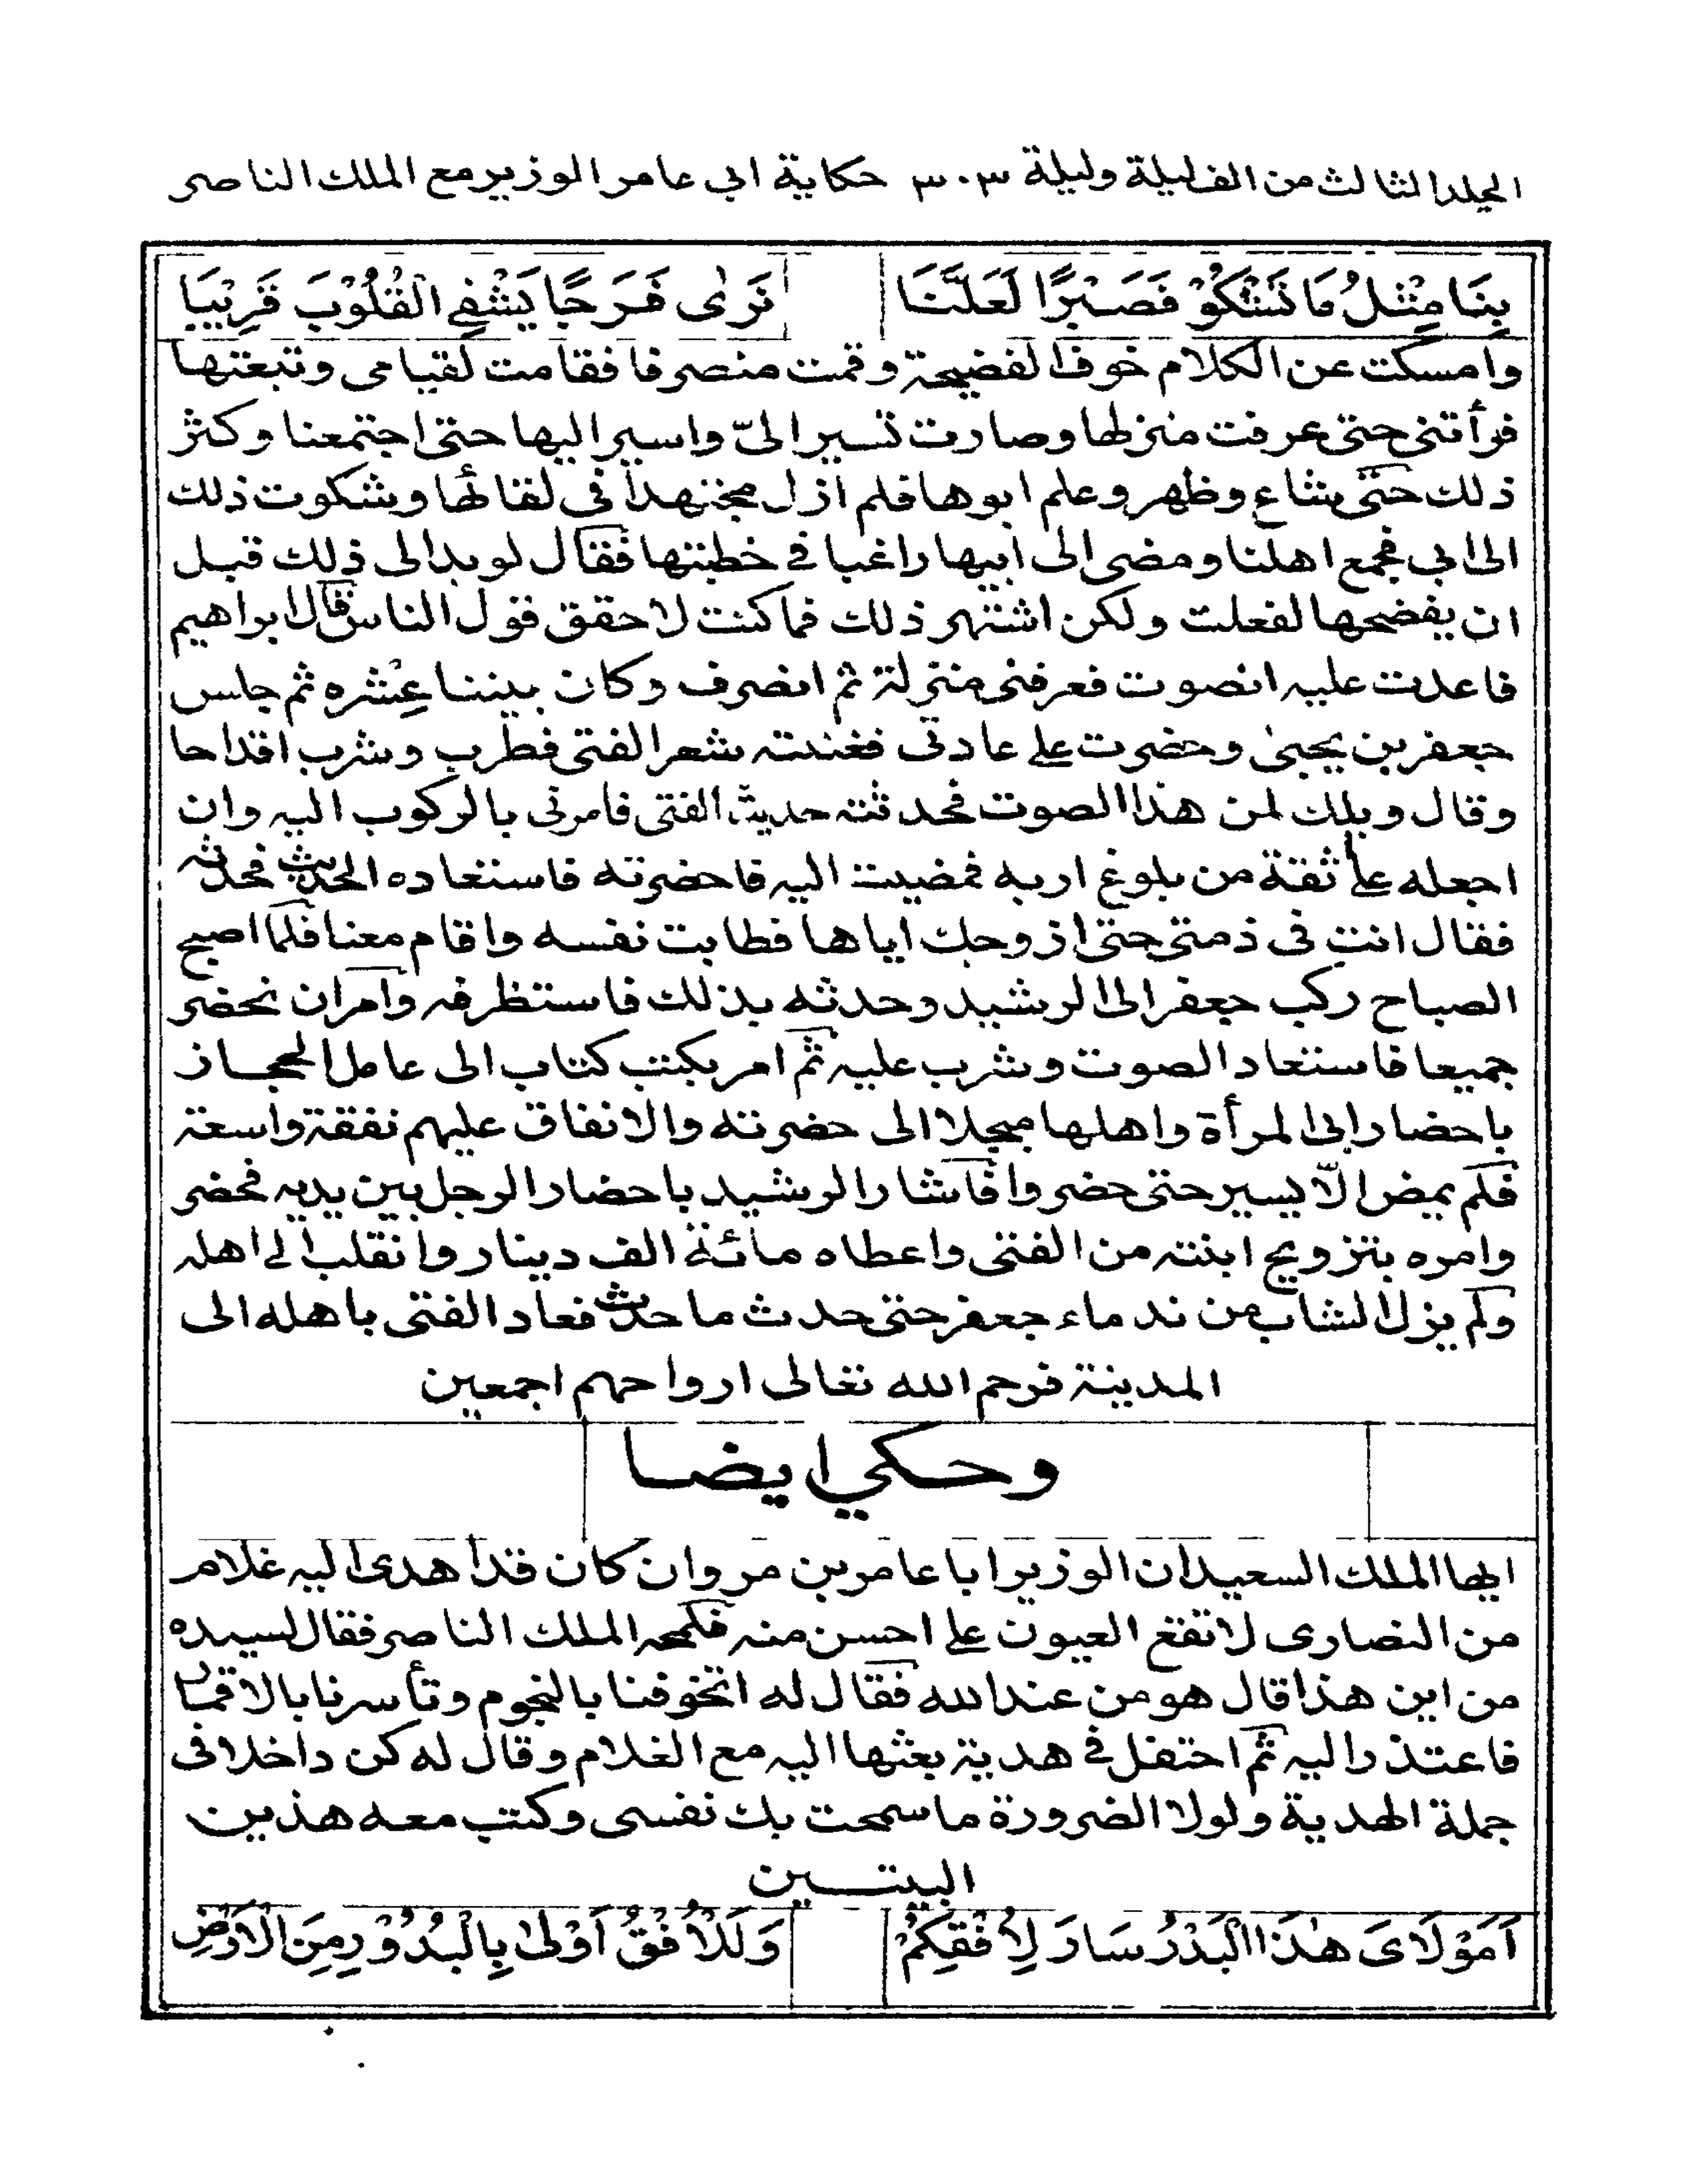 المجلد الثالث من الف ليلة وليلة ٣٠٣ حكاية ابي عامر الوزير مع الملك الناصر
بِنَا مِثْلُ مَا تَشْكُوْ فَصَبْرًا لَعَلَّنَا نَرٰى فَرَجًا يَشْفِي الْقُلُوْبَ قَرِيْبَا
وامسكت عن الكلام خوف الفضيحة وقمت منصرفا فقامت لقيامى وتبعتها
فرأتنى حتى عرفت منزلها وصارت تسير الىّ واسير اليها حتى اجتمعنا وكثر
ذلك حتى شاع وظهر وعلم ابوها فلم ازل مجتهدا فى لقائها وشكوت ذلك
الى ابي فجمع اهلنا ومضى الى ابيها راغبا في خطبتها فقال لو بدا لى ذلك قبل
ان يفضحها لفعلت ولكن اشتهر ذلك فما كنت لاحقق قول الناس قال ابراهيم
فاعدت عليه الصوت فعرفنى منزلة ثم انصرف وكان بيننا عِشْره ثم جلس
جعفر بن يحيىٰ وحضرت على عادتى فغنيته شعر الفتى فطرب وشرب اقداحا
وقال ويلك لمن هذا الصوت فحدثته حديث الفتى فامرنى بالركوب اليه وان
اجعله على ثقة من بلوغ اربه فمضيت اليه فاحضرته فاستعاده الحديث فحدثه
فقال انت فى ذمتى حتى ازوجك اياها فطابت نفسه واقام معنا فلما اصبح
الصباح ركب جعفر الى الرشيد وحدثه بذلك فاستظرفه وامر ان نحضر
جميعا فاستعاد الصوت وشرب عليه ثم امر بكتب كتاب الى عامل الحجاز
باحضار ابى المرأة واهلها مبجلا الى حضرته والانفاق عليهم نفقة واسعة
فلم يمض الّا يسير حتى حضروا فاشار الرشيد باحضار الرجل بين يديه فحضر
وامره بتزويج ابنته من الفتى واعطاه مائة الف دينار وانقلب الى اهله
ولم يزل الشاب من ندماء جعفر حتى حدث ما حدث فعاد الفتى باهله الى
المدينة فرحم الله تعالى ارواحهم اجمعين
وحكي ايضا
ايها الملك السعيد ان الوزير ابا عامر بن مروان كان قد اهدى اليه غلام
من النصارى لا تقع العيون على احسن منه فلمحه الملك الناصر فقال لسيده
من اين هذا قال هو من عند الله فقال له اتخوفنا بالنجوم وتأسرنا بالاقمار
فاعتذر اليه ثم احتفل في هدية بعثها اليه مع الغلام وقال له كن داخلا فى
جملة الهدية ولولا الضرورة ما سمحت بك نفسى وكتب معه هذين
البيتين
اَمَوْلَاىَ هٰذَا الْبَدْرُ سَارَ لِاُفْقِكُمْ وَلَلْاُفْقُ اَوْلٰى بِالْبُدُوْرِ مِنَ الْاَرْضِ